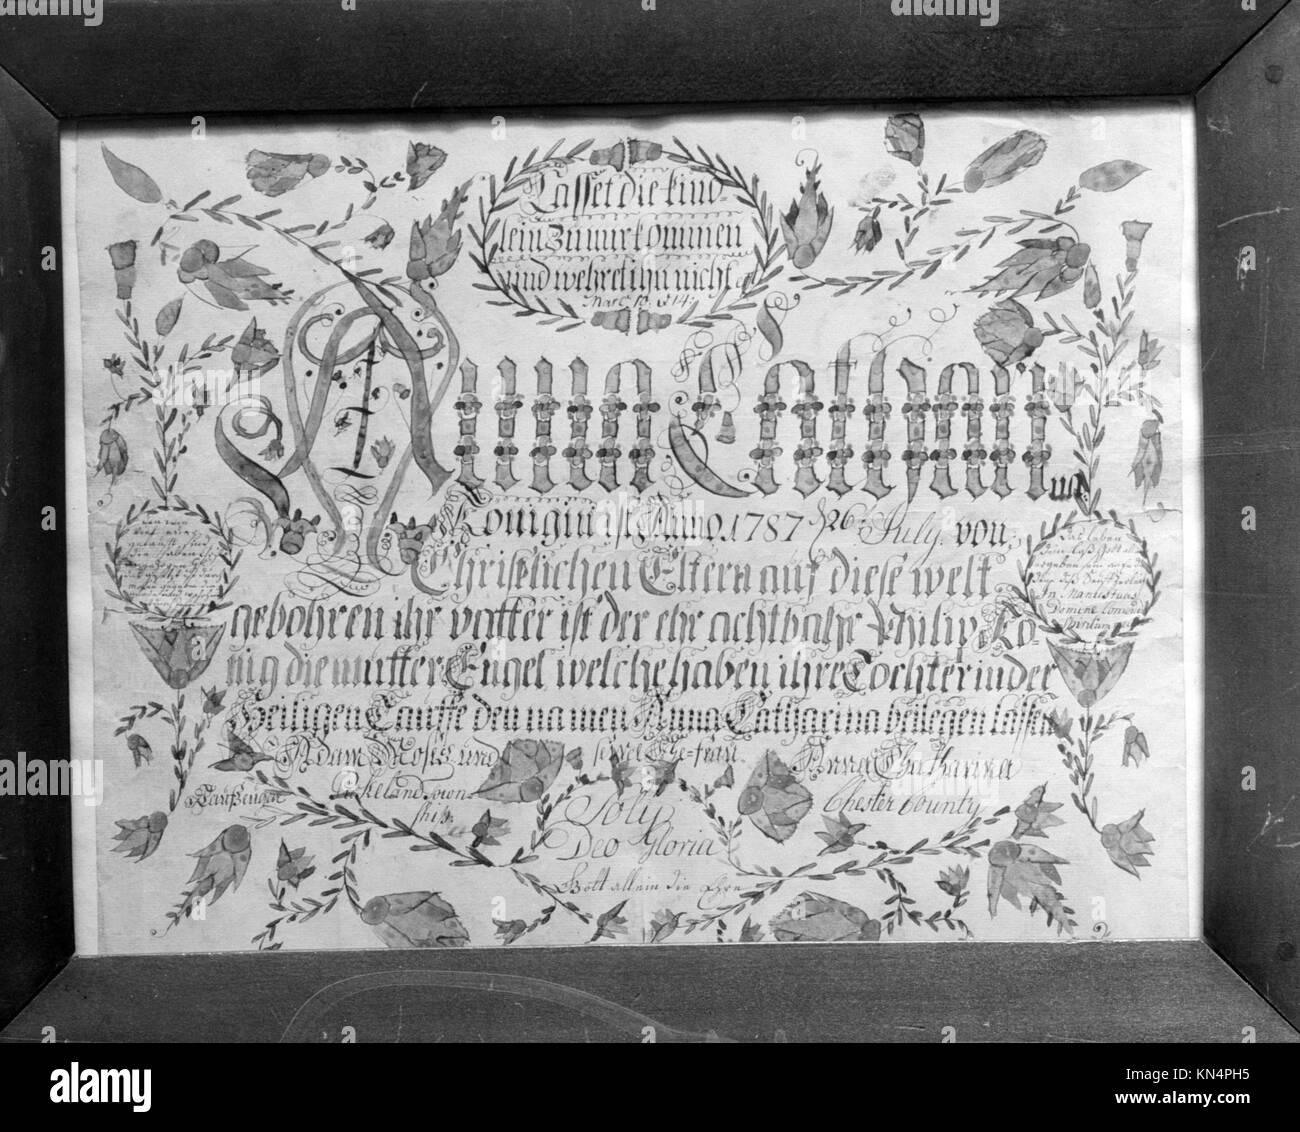 Lasset die kind=
lein zu mir kommen
und wehret ihn nicht
Marc. 10. v 14.
Anna Catharina
Königin ist Anno. 1787 d 26t July. von
Christlichen Eltern auf diese welt
gebohren ihr vatter ist der ehr achtbahr Philip Kö
nig die mutter Engel, welche haben ihre Tochter in der
Heiligen Tauffe den namen Anna Catharina beilegen lassen
Adam Moses und seine Ehe frau Anna Chatharina
Tauffzeugen
Pickeland Town
ship. Chester County
Soly
Deo Gloria
Gott allein die Ehre
Das Leben
In Manus tuas
Domine
alamy
alamy stock photo
Image ID: KN4PH5
www.alamy.com